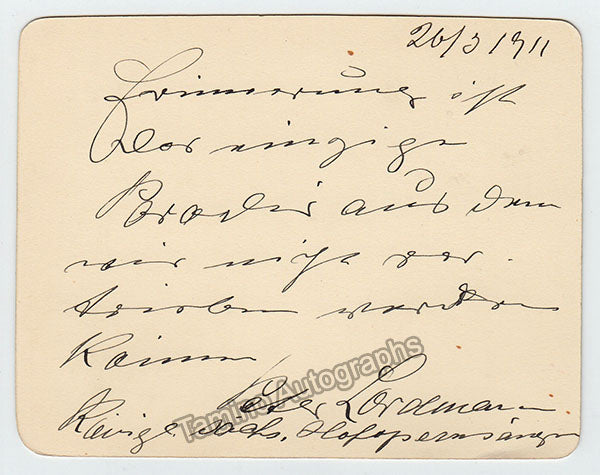 26/3 1911
Erinnerung ist
das einzige
Paradis aus dem
wir nicht ver-
trieben werden
können
Peter Lordmann
Königl. sächs. Hofopernsänger
Tamino Autographs